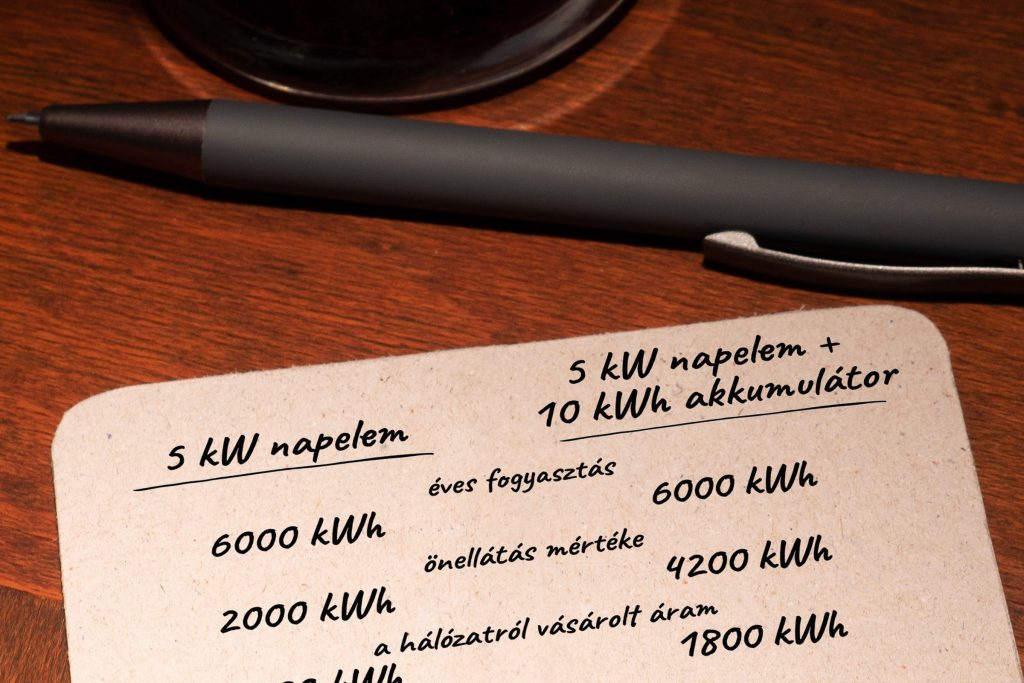 5 kW napelem +
10 kWh akkumulátor
5 kW napelem
éves fogyasztás
6000 kWh
6000 kWh
önellátás mértéke
2000 kWh
4200 kWh
a hálózatról vásárolt áram
kWh
1800 kWh